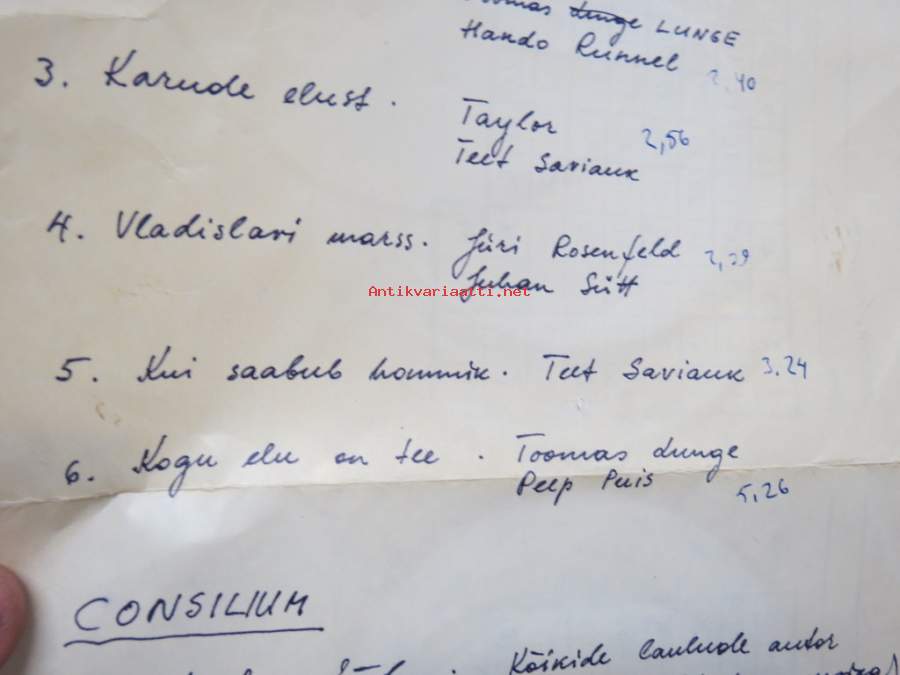 Toomas Lunge LUNGE
Hando Runnel 2.40
3. Karude elust. Taylor 2,56
Teet Saviauk
4. Vladislavi marss. Jüri Rosenfeld 2,29
Juhan Sütt
Antikvariaatti.net
5. Kui saabub hommik. Teet Saviauk 3.24
6. Kogu elu on tee. Toomas Lunge
Peep Puis 5,26
CONSILIUM
Kõikide laulude autor